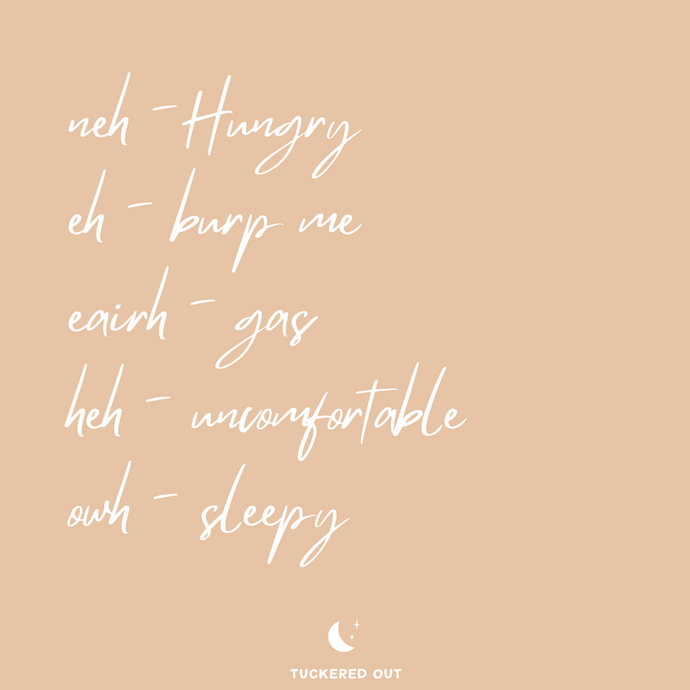 neh - Hungry
eh - burp me
eairh - gas
heh - uncomfortable
owh - sleepy
TUCKERED OUT